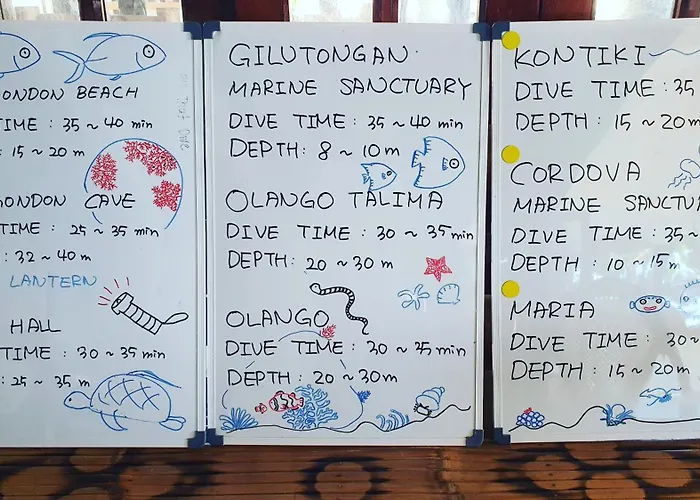 ONDON BEACH
TIME : 35 ~ 40 min
: 15 ~ 20 m
ONDON CAVE
TIME : 25 ~ 35 min
: 32 ~ 40 m
LANTERN
HALL
TIME : 30 ~ 35 min
: 25 ~ 35 m
GILUTONGAN
MARINE SANCTUARY
DIVE TIME : 35 ~ 40 min
DEPTH : 8 ~ 10 m
OLANGO TALIMA
DIVE TIME : 30 ~ 35 min
DEPTH : 20 ~ 30 m
OLANGO
DIVE TIME : 30 ~ 35 min
DEPTH : 20 ~ 30 m
KONTIKI
DIVE TIME : 35
DEPTH : 15 ~ 20 m
CORDOVA
MARINE SANCTUA
DIVE TIME : 35 ~
DEPTH : 10 ~ 15 m
MARIA
DIVE TIME : 30 ~
DEPTH : 15 ~ 20 m